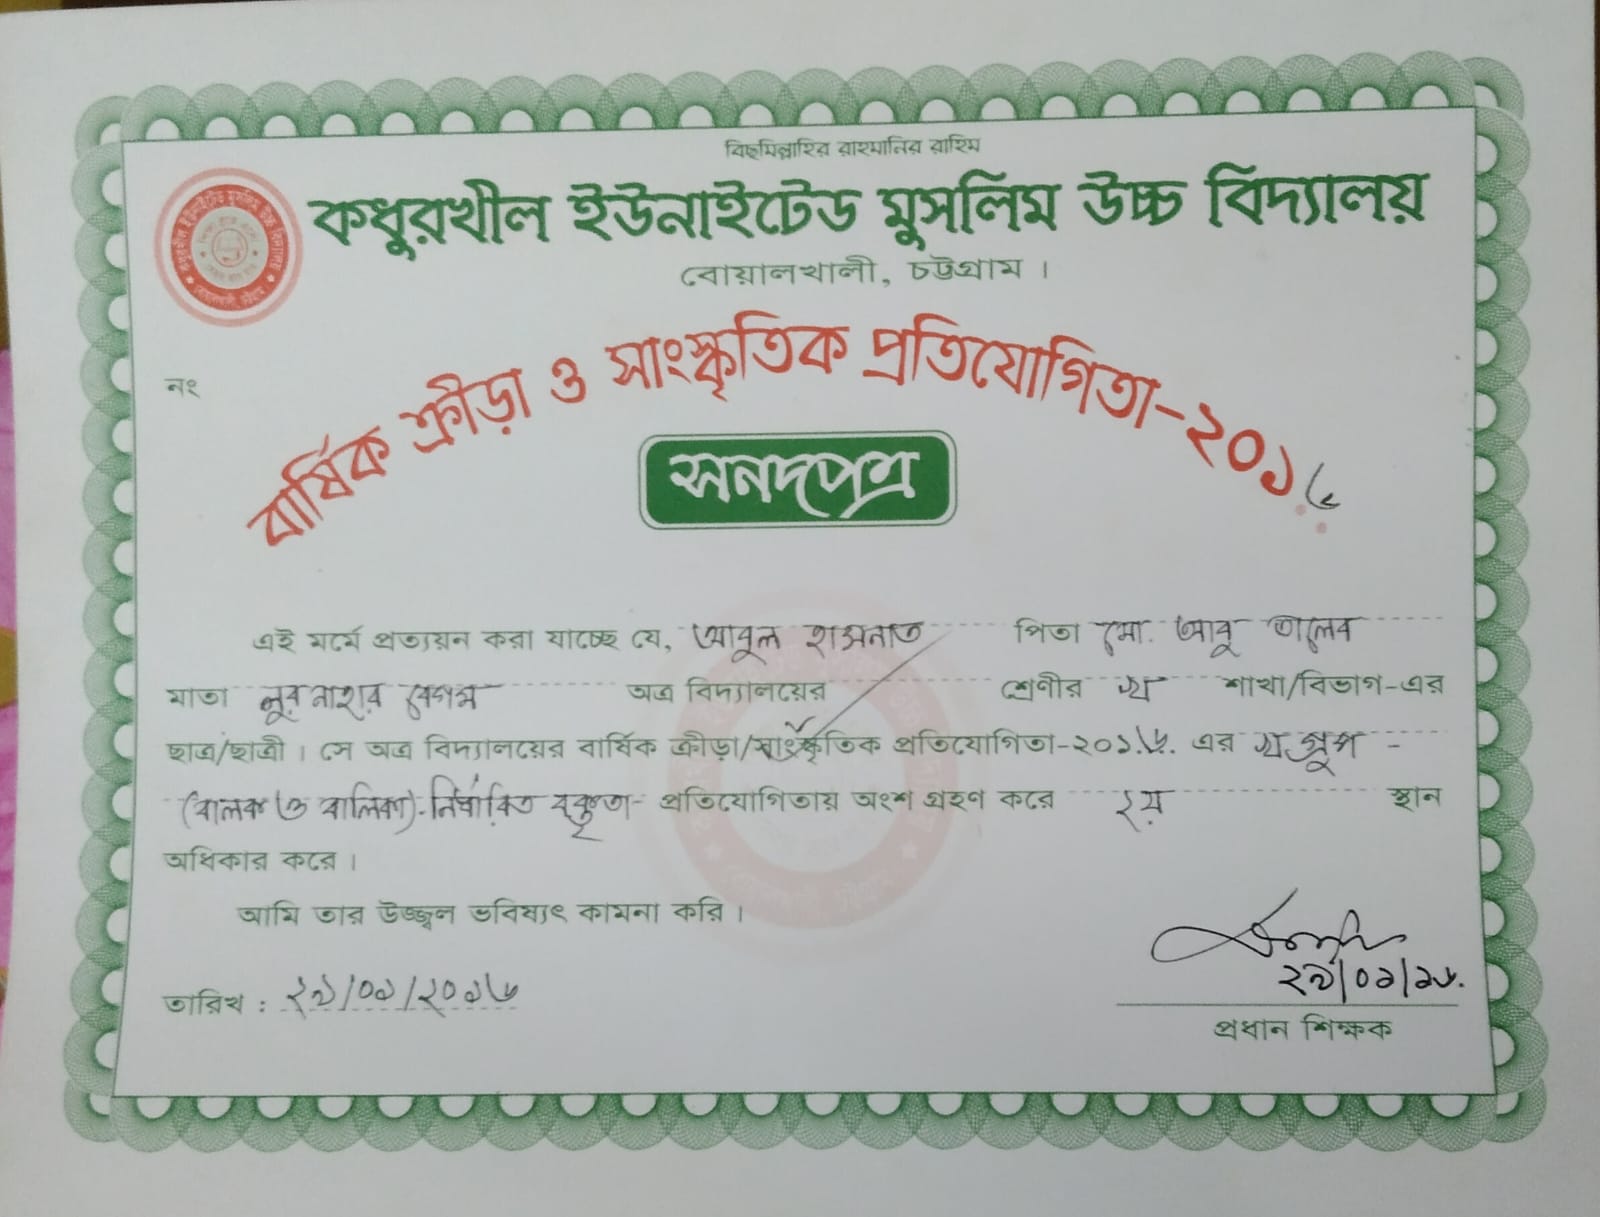 বিছমিল্লাহির রাহমানির রাহিম
কধুরখীল ইউনাইটেড মুসলিম উচ্চ বিদ্যালয়
বোয়ালখালী, চট্টগ্রাম ।
নং
বার্ষিক ক্রীড়া ও সাংস্কৃতিক প্রতিযোগিতা-২০১৬
সনদপত্র
এই মর্মে প্রত্যয়ন করা যাচ্ছে যে, আবুল হাসনাত পিতা মো. আবু তালেব
মাতা নুর নাহার বেগম অত্র বিদ্যালয়ের শ্রেণীর খ শাখা/বিভাগ-এর
ছাত্র/ছাত্রী । সে অত্র বিদ্যালয়ের বার্ষিক ক্রীড়া/সাংস্কৃতিক প্রতিযোগিতা-২০১৬. এর খ গ্রুপ -
(বালক ও বালিকা)-নির্ধারিত বক্তৃতা- প্রতিযোগিতায় অংশ গ্রহণ করে ২য় স্থান
অধিকার করে ।
আমি তার উজ্জ্বল ভবিষ্যৎ কামনা করি ।
তারিখ : ২৯/০১/২০১৬
২৯/০১/১৬.
প্রধান শিক্ষক